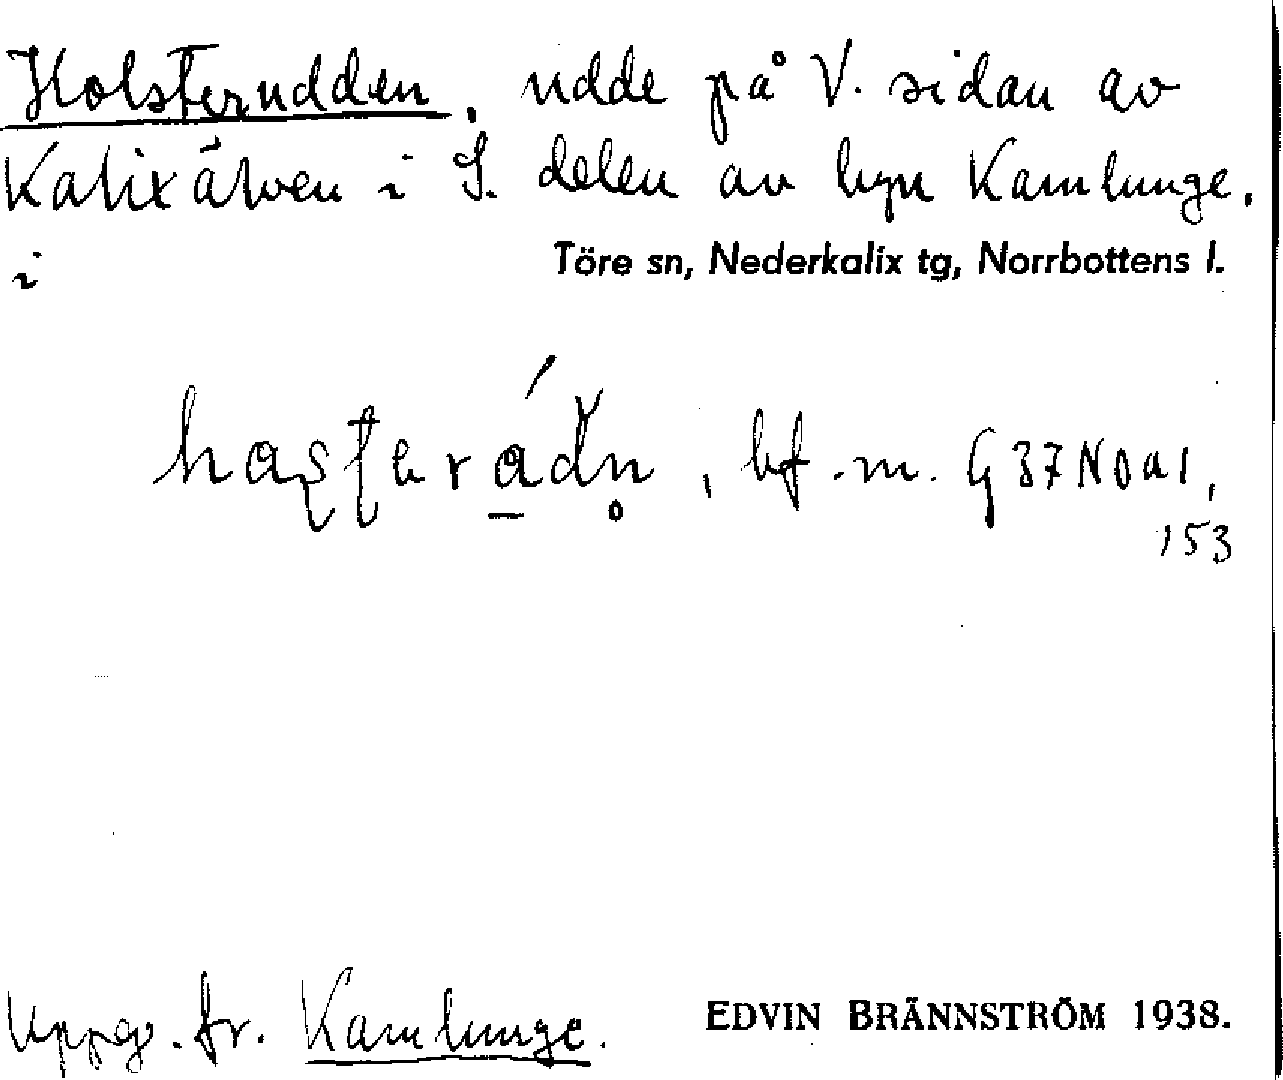 Holsterudden, udde på V. sidan av
Kalixälven i S. delen av byn Kamlunge.
i Töre sn, Nederkalix tg, Norrbottens l.
bf. m. G37NOa1,
153
Uppg. fr. Kamlunge. EDVIN BRÄNNSTRÖM 1938.